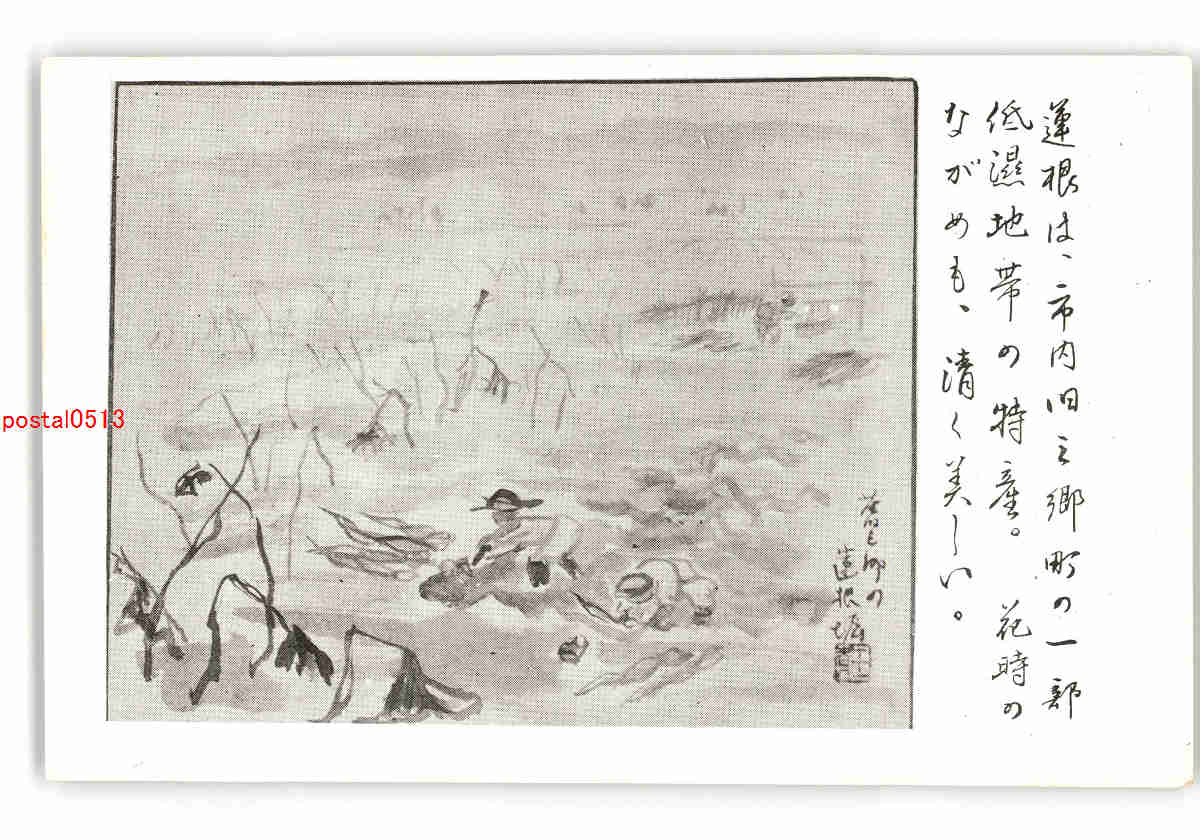 蓮根は、市内旧三郷町の一部
低濕地帯の特産。花時の
ながめも、清く美しい。
郷の
蓮根堀
postal0513